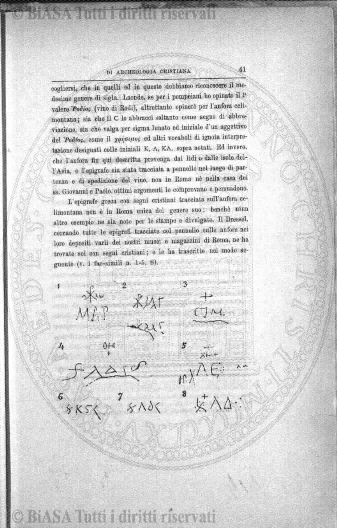 © BiASA Tutti i diritti riservati
DI ARCHEOLOGIA CRISTIANA 41
cogliersi, che in quelli ed in queste dobbiamo riconoscere il me-
desimo genere di sigla. Laonde, se per i pompeiani ho opinato il P
valere Ῥόδιος (vino di Rodi), altrettanto opinerò per l'anfora celi-
montana; sia che il C le abbracci soltanto come segno di abbre-
viazione, sia che valga per sigma lunato ed iniziale d'un aggettivo
del Ῥόδιος, come il ed altri vocaboli di ignota interpre-
tazione designati colle iniziali K, Λ, ΚΛ, sopra notati. Ed invero,
che l'anfora fin qui descritta provenga dai lidi e dalle isole del-
l'Asia, e l'epigrafe sia stata tracciata a pennello nel luogo di par-
tenza e di spedizione del vino, non in Roma nè nella casa dei
ss. Giovanni e Paolo, ottimi argomenti le comprovano e persuadono.
L'epigrafe greca con segni cristiani tracciata sull'anfora ce-
limontana non è in Roma unica del genere suo: benchè niun
altro esempio ne sia noto per le stampe e divulgato. Il Dressel,
cercando tutte le epigrafi tracciate col pennello sulle anfore nei
loro depositi varii dei nostri musei e magazzini di Roma, ne ha
trovate sei con segni cristiani; e le ha trascritte nel modo se-
guente (v. i fac-simili n. 1-5, 8).
1 2 3
4 5
6 7 8
© BiASA Tutti i diritti riservati